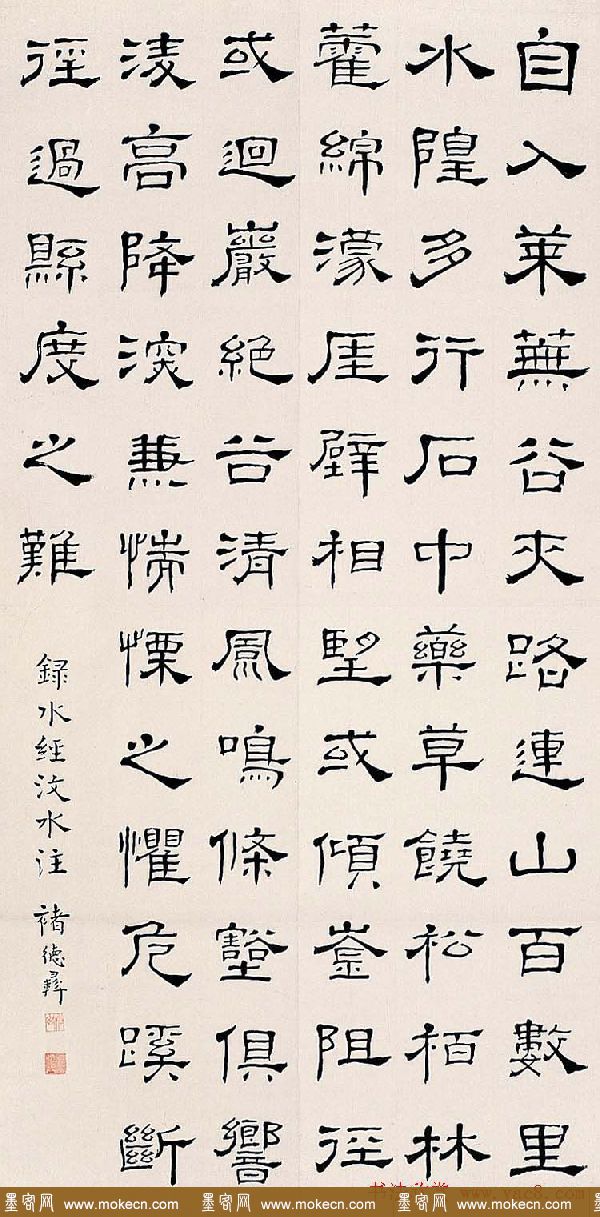 自入萊蕪谷夾路連山百數里
水隍多行石中藥草饒松栢林
藿綿濛厓壁相望或傾崟阻徑
或迴巖絕谷清風鳴條壑俱響
淩高降深兼惴慄之懼危蹊斷
徑過縣度之難
錄水經汶水注 褚德彝
墨客网 www.mokecn.com 墨客网 www.mokecn.com 墨客网 www.mokecn.com